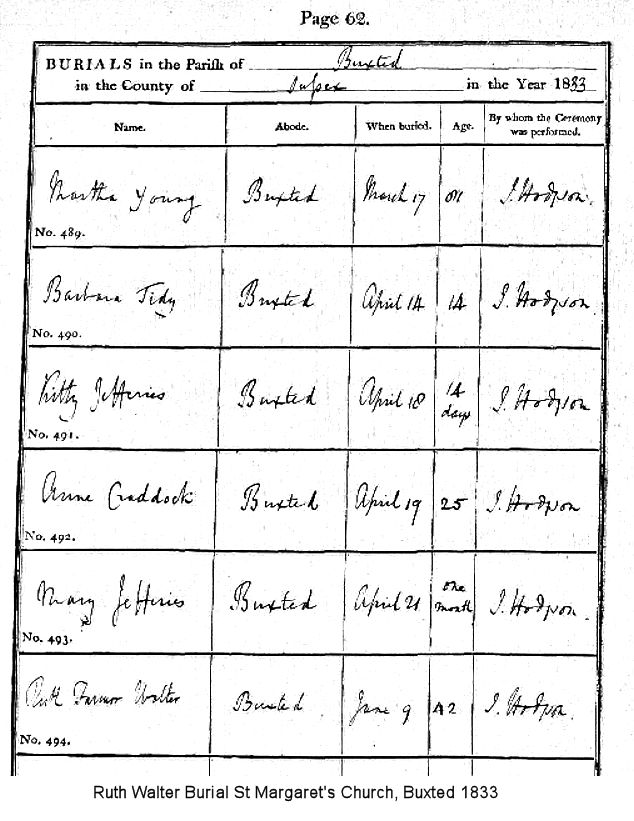 Page 62.
BURIALS in the Parish of Buxted
in the County of Sussex in the Year 1833
Name. Abode. When buried. Age. By whom the Ceremony was performed.
Martha Young Buxted March 17 J. Hodgson.
No. 489.
Barbara Tidy Buxted April 14 14 J. Hodgson.
No. 490.
Kitty Jefferies Buxted April 18 14 days J. Hodgson
No. 491.
Anne Craddock Buxted April 19 25 J. Hodgson
No. 492.
Mary Jefferies Buxted April 21 one month J. Hodgson.
No. 493.
Ruth Farmor Walter Buxted June 9 42 J. Hodgson.
No. 494.
Ruth Walter Burial St Margaret's Church, Buxted 1833